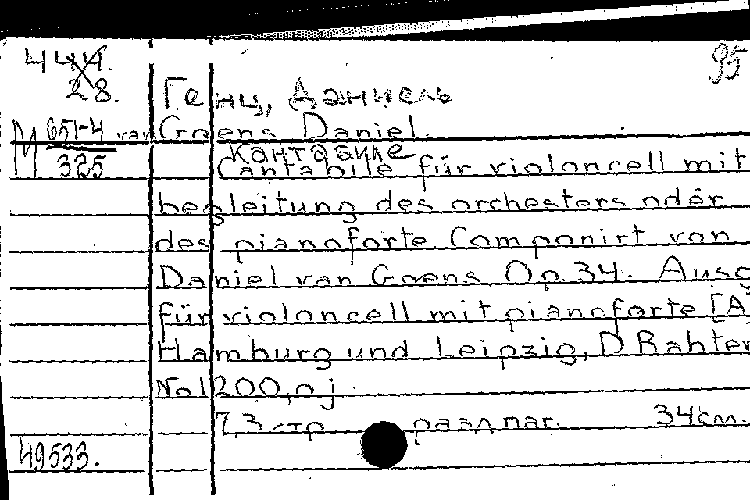 444.
95
28.
Генц, Даниель
М 651-4
325
van Goens Daniel.
Кантабиле
Cantabile für violoncell mit
begleitung des orchesters oder
des pianoforte Componirt von
Daniel van Goens Op. 34. Ausg
für violoncell mit pianoforte [A
Hamburg und Leipzig, D Rahter
No 1200, o j.
7,3 стр разд. паг. 34 см.
49533.